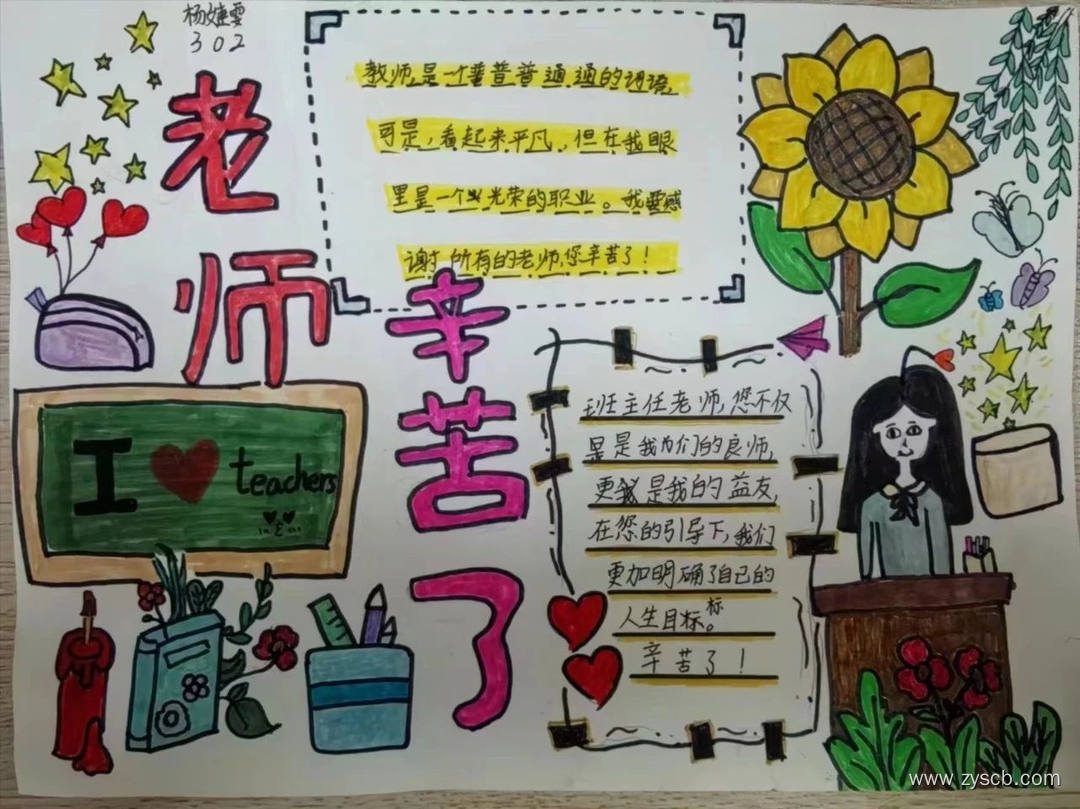 杨婕雲
302
老师
辛苦了
教师,是一个普普普通通的词语,
可是,看起来平凡,但在我眼
里是一个光荣的职业。我要感
谢所有的老师,您辛苦了!
I ❤ teachers
班主任老师,您不仅
是我们的良师,
更是我的益友,
在您的引导下,我们
更加明确了自己的
人生目标。标
辛苦了!
www.zyscb.com